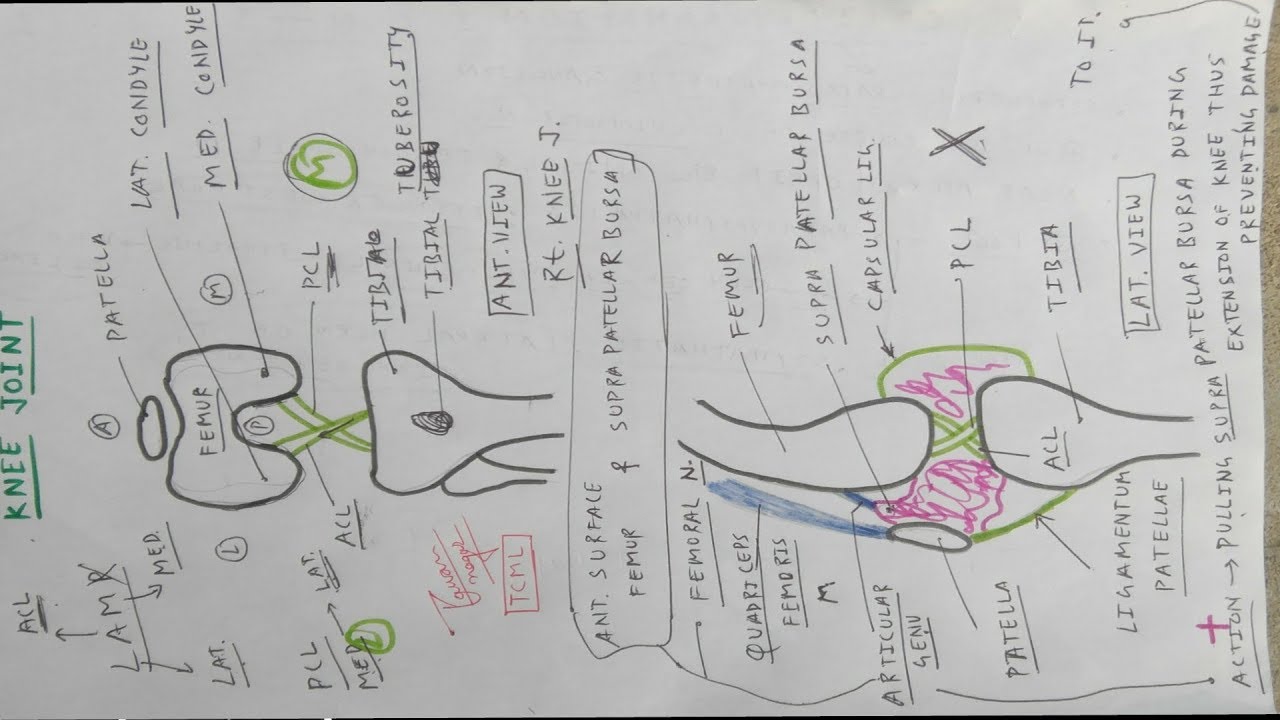 KNEE JOINT
ACL
LAMP
MED.
LAT.
PCL LAT.
MED
A
PATELLA
LAT. CONDYLE
MED. CONDYLE
L
M
FEMUR
P
PCL
ACL
TIBIA
TIBIAL TUBEROSITY
ANT. VIEW
Rt. KNEE J.
TCML
ANT. SURFACE
FEMUR
& SUPRA PATELLAR BURSA
FEMORAL N.
QUADRICEPS
FEMORIS
M
FEMUR
SUPRA PATELLAR BURSA
CAPSULAR LIG.
ARTICULAR
GENU
PCL
PATELLA
ACL
TIBIA
LIGAMENTUM
PATELLAE
LAT. VIEW
ACTION → PULLING SUPRA PATELLAR BURSA DURING
EXTENSION OF KNEE THUS
PREVENTING DAMAGE
TO IT.